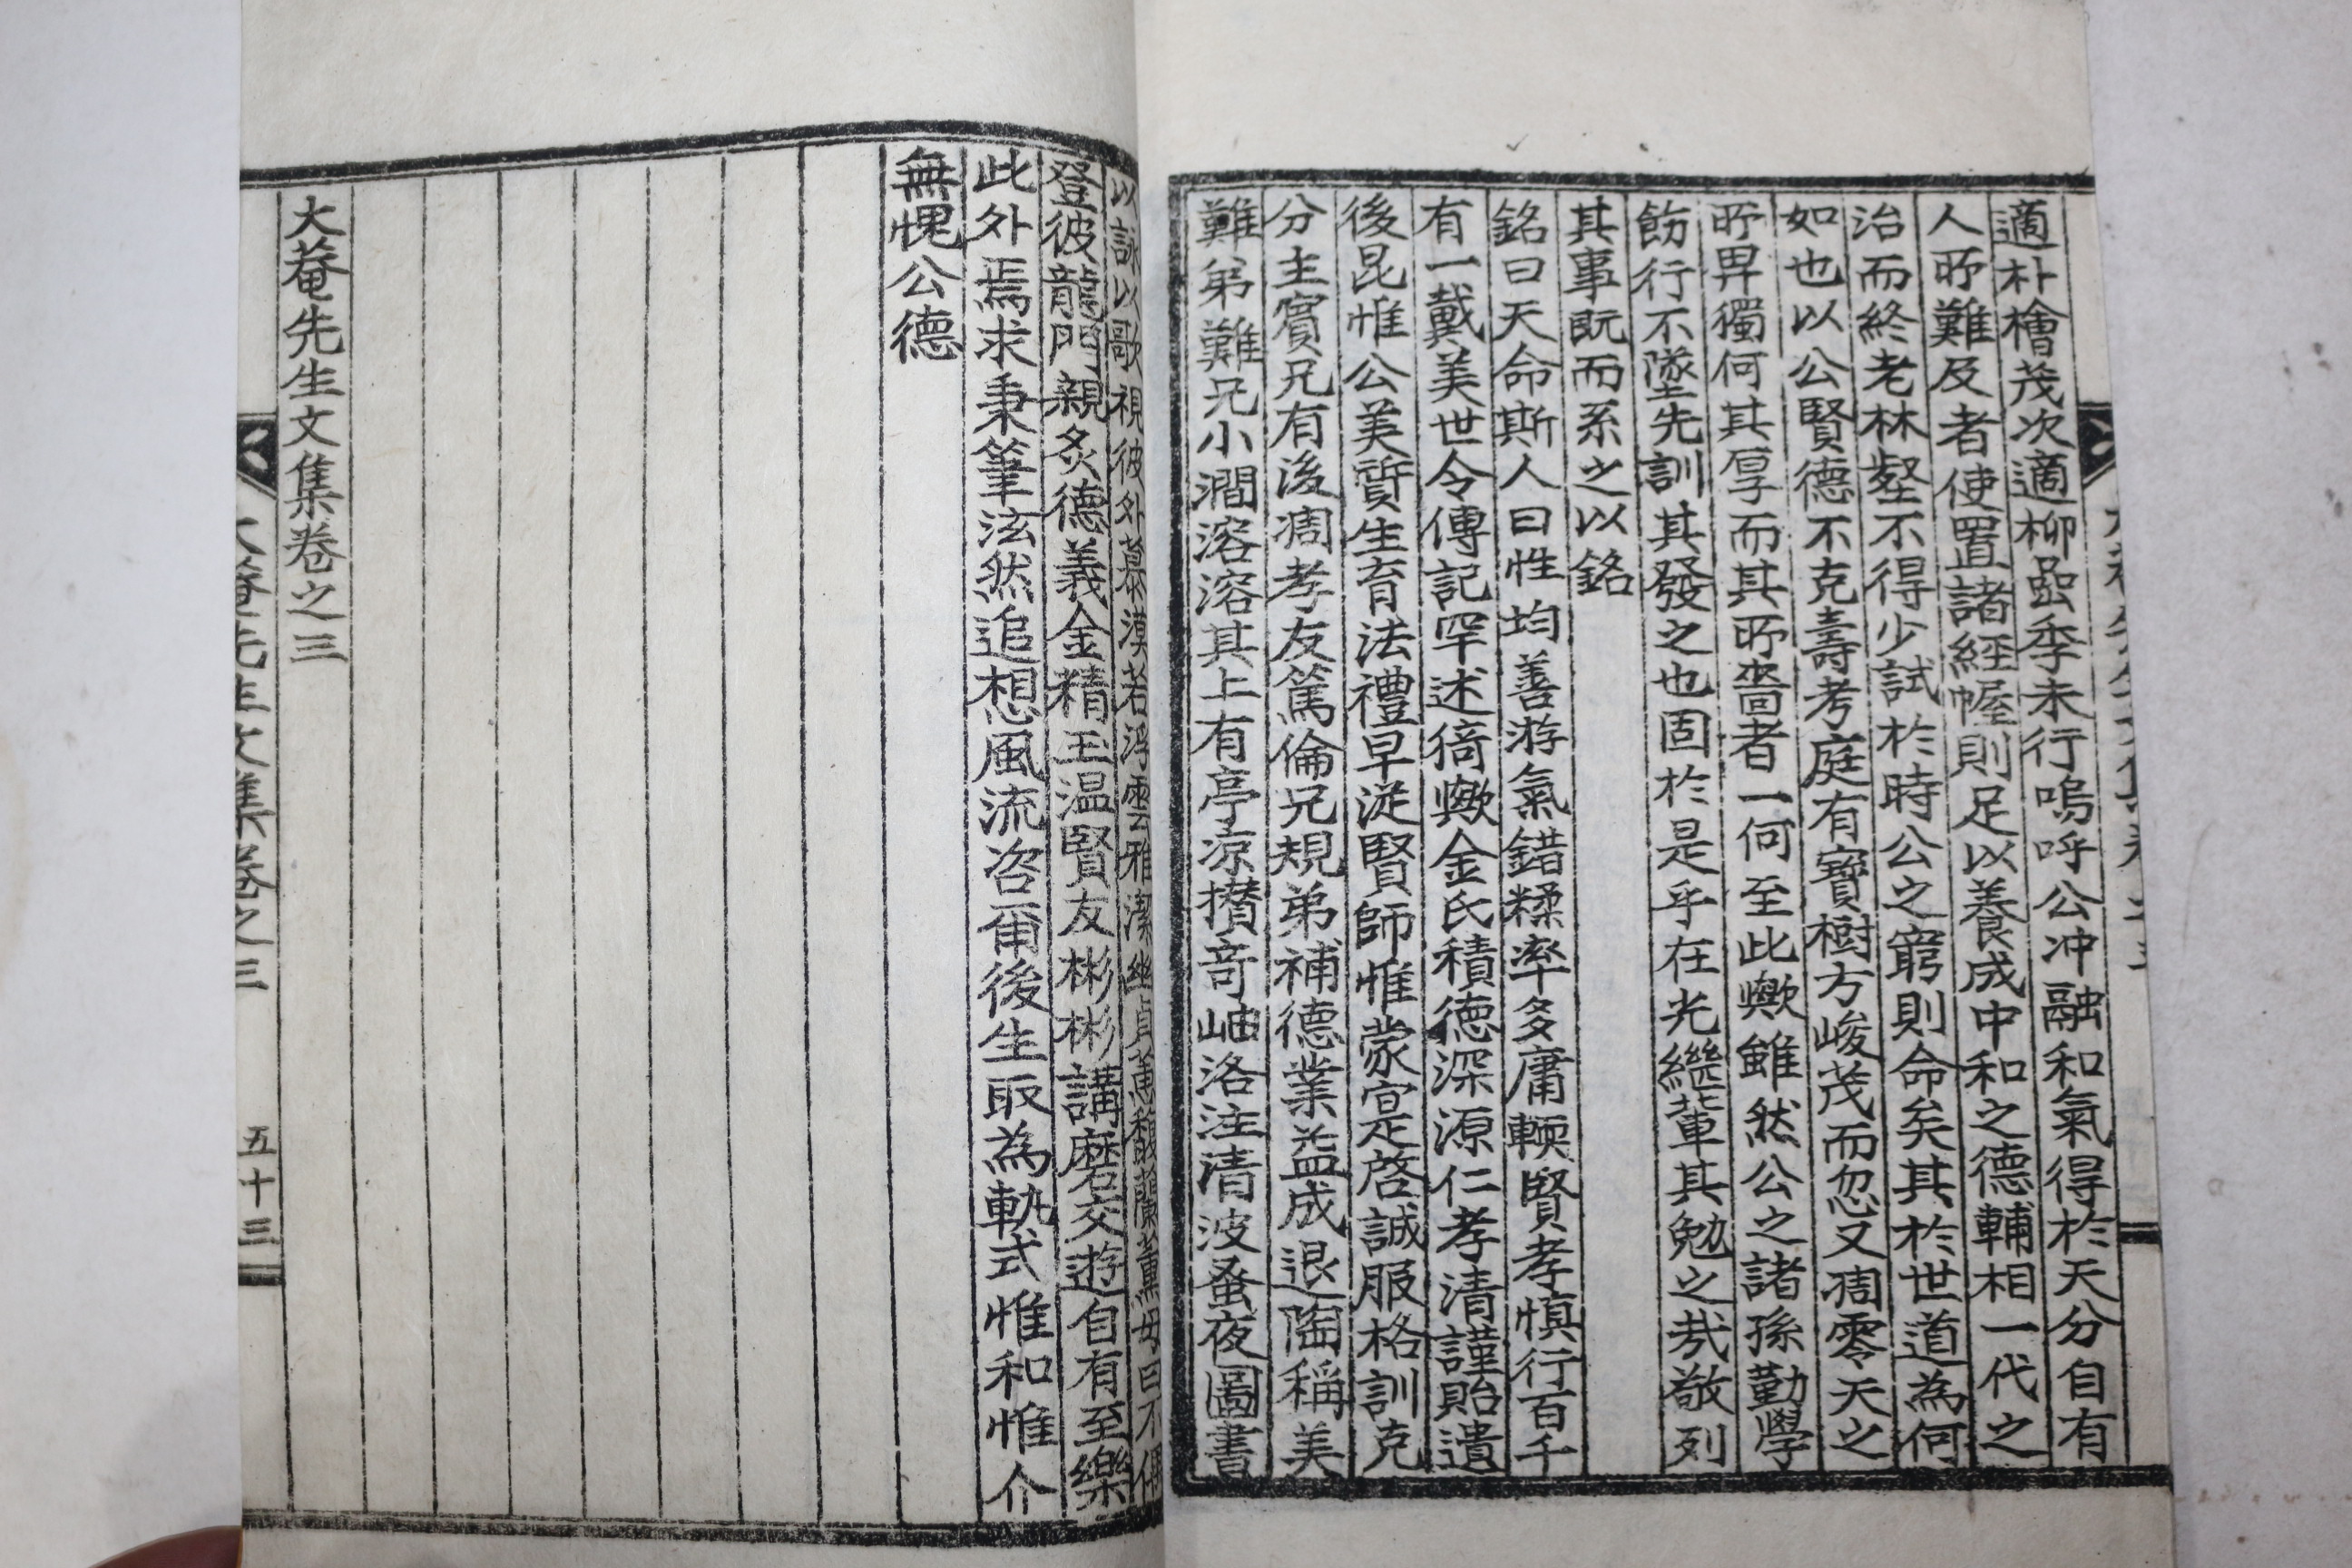 適朴檜茂次適柳㽔季未行嗚呼公冲融和氣得於天分自有
人所難及者使置諸經幄則足以養成中和之德輔相一代之
治而終老林壑不得少試於時公之窮則命矣其於世道爲何
如也以公賢德不克壽考庭有寶樹方峻茂而忽又凋零天之
所畀獨何其厚而其所嗇者一何至此歟雖然公之諸孫勤學
飭行不墜先訓其發之也固於是乎在光繼軰其勉之㢤敬列
其事既而系之以銘
銘曰天命斯人曰性均善游氣錯糅率多庸輭賢孝愼行百千
有一戴美世令傳記罕述猗歟金氏積德深源仁孝清謹貽遺
後昆惟公美質生育法禮早從賢師惟蒙寔啓誠服格訓克
分主賓兄有後凋孝友篤倫兄規弟補德業益成退陶稱美
難弟難兄小澗溶溶其上有亭凉攅竒岫洛注清波蚤夜圖書
以詠以歌視彼外慕漠若浮雲雅潔幽貞蕙馥蘭薰毋曰不偶
登彼龍門親炙德義金精玉温賢友彬彬講磨交遊自有至樂
此外焉求秉筆泫然追想風流咨爾後生取為軌式惟和惟介
無愧公德
大菴先生文集卷之三
大菴先生文集卷之三 五十三